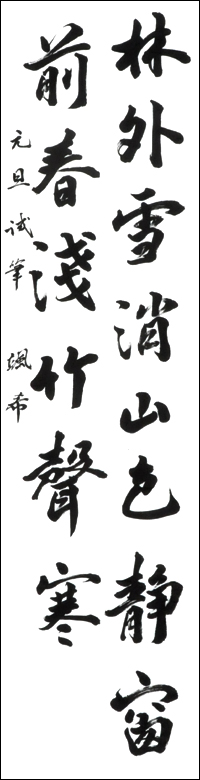 林外雪消山色静窗
前春淺竹聲寒
元旦试筆 颯希